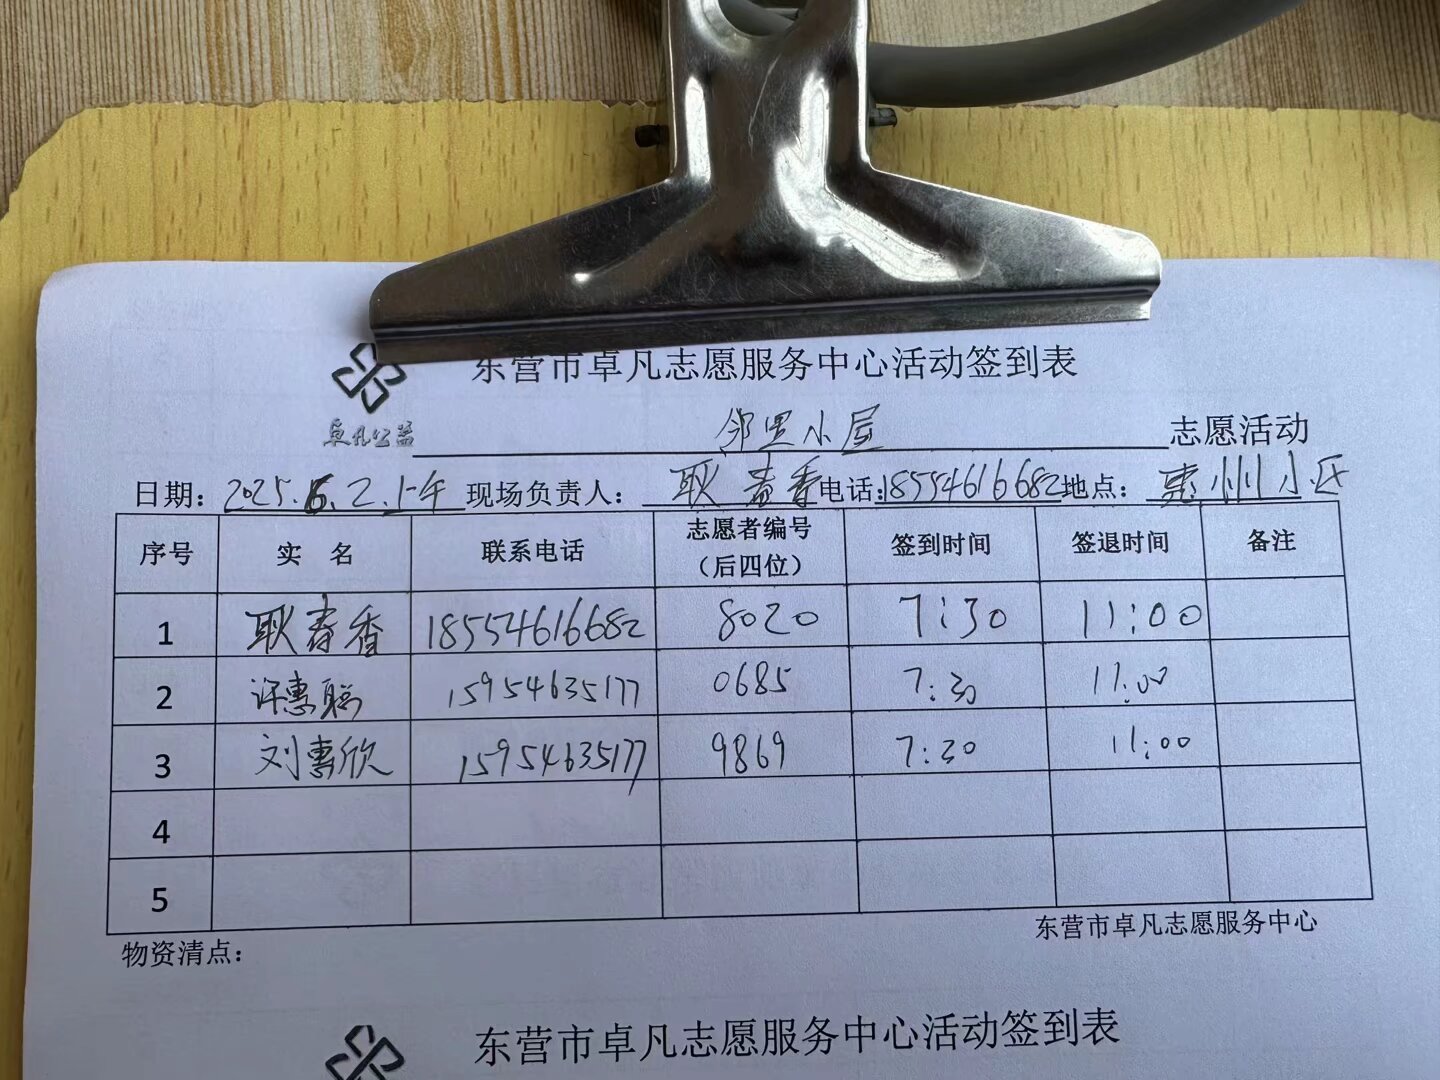 东营市卓凡志愿服务中心活动签到表
卓凡公益 邻里小屋 志愿活动
日期：2025.6.2.上午 现场负责人：耿春香 电话：18554616682 地点：惠州小区
序号 实 名 联系电话 志愿者编号（后四位） 签到时间 签退时间 备注
1 耿春香 18554616682 8020 7:30 11:00
2 许惠聪 15954635177 0685 7:30 11:00
3 刘惠欣 15954635177 9869 7:30 11:00
4
5
东营市卓凡志愿服务中心
物资清点：
东营市卓凡志愿服务中心活动签到表